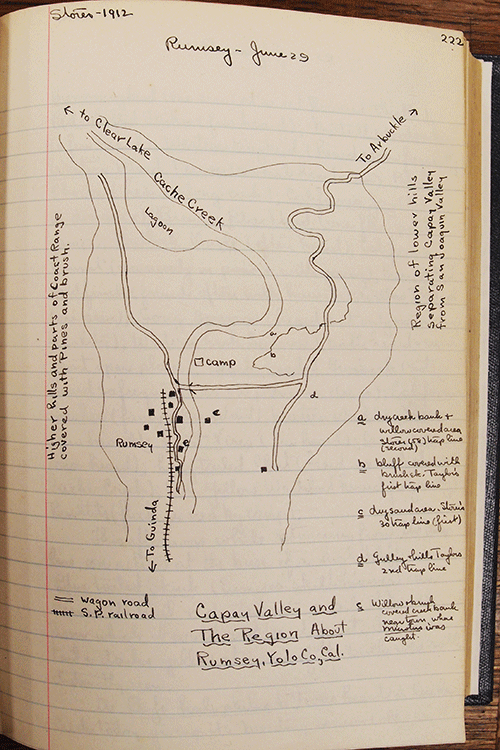 Storer-1912
222
Rumsey - June 29
← to Clear Lake
To Arbuckle →
Cache Creek
Lagoon
Higher hills and parts of Coast Range
covered with Pines and brush.
Region of lower hills
separating Capay Valley
from San Joaquin Valley
a
b
camp
d
c
e
Rumsey
← To Guinda
a dry creek bank &
willow covered area
Storer's trap line
(second)
b bluff covered with
brush etc. Taylor's
first trap line
c dry sand area. Storer's
30 trap line (first)
d Gulley, hills Taylor's
2nd trap line
Willow & brush
covered creek bank
near town, where
was
caught.
= wagon road
S.P. railroad
Capay Valley and
The Region About
Rumsey, Yolo Co., Cal.